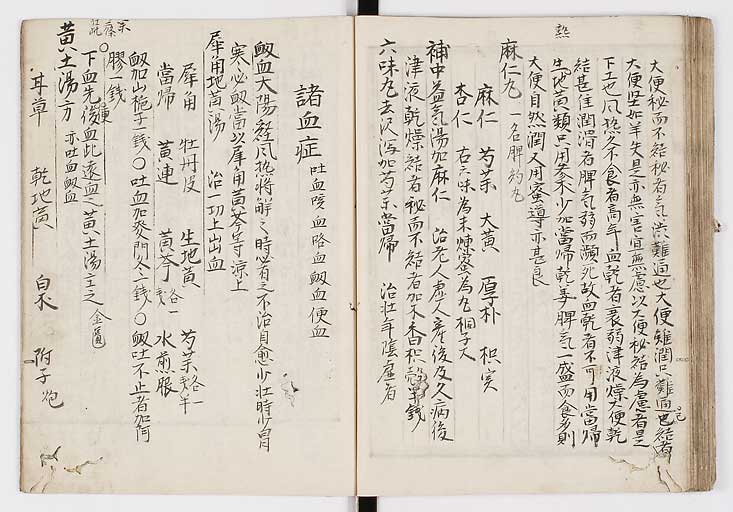 熱
大便秘而不結秘者氣澁難通也大便雖潤只難通也結者
大便堅如羊失是亦無害宜無慮以大便秘結為慮者是
下工也風熱久不食者高年血乾者衰弱津液燥大便乾
結甚佳潤滑者脾氣弱而瀕死故血乾者不可用當帰
生地黃類只用參朮少加當帰乾姜脾氣一盛而食多則
大便自然潤又用蜜導亦甚良
麻仁丸 一名脾約丸
麻仁 芍藥 大黃 厚朴 枳實
杏仁 右六味為末煉蜜為丸桐子大
補中益氣湯加麻仁 治老人虛人産後及久病後
津液乾燥結者秘而不結者加木香枳殼錢
六味丸去沢瀉加芍藥當帰 治壮年陰虛者
諸血症 吐血咳血咯血衄血便血
衄血太陽経風熱将解之時必有之不治自愈少壮時少冒
寒必衄當以犀角黃芩等涼上
犀角地黃湯 治一切上出血
犀角 牡丹皮 生地黃 芍藥各一戔半
當帰 黃連 黃芩各一戔 水煎服
衄加山梔子一錢○吐血加麥門冬一錢○衄吐不止者加阿
膠一錢
○下血先便後血此遠血也黃土湯主之金匱
黃土湯方 亦吐血衄血
甘草 乾地黃 白朮 附子炮